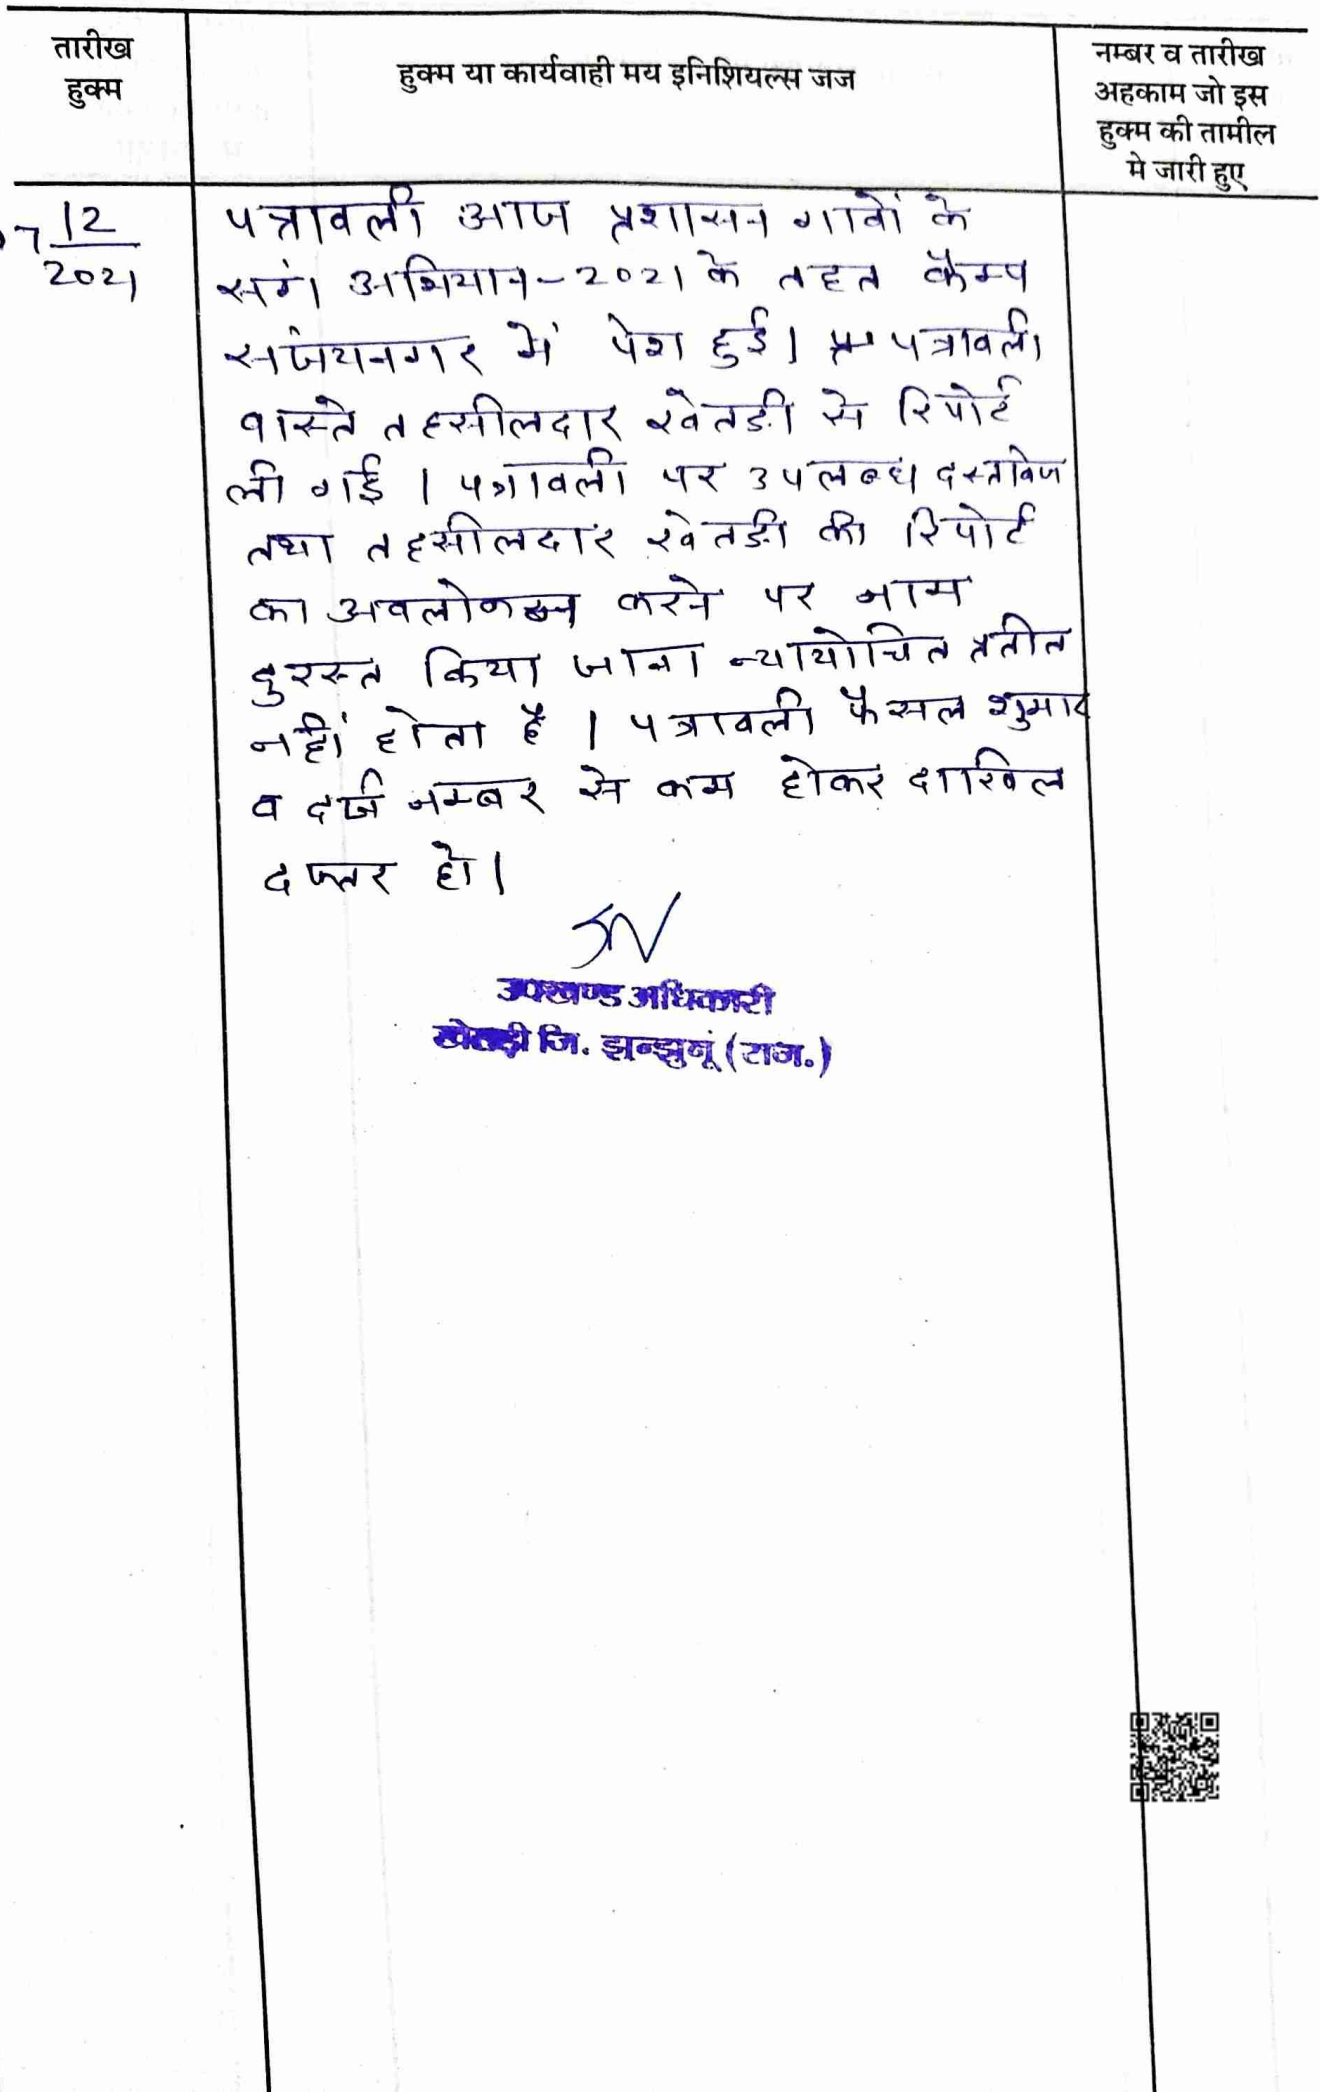 तारीख
हुक्म
हुक्म या कार्यवाही मय इनिशियल्स जज
नम्बर व तारीख
अहकाम जो इस
हुक्म की तामील
मे जारी हुए
7 12
2021
पत्रावली आज प्रशासन गावों के
सगं अभियान-2021 के तहत कैम्प
संजयनगर में पेश हुई। पत्रावली
वास्ते तहसीलदार खेतडी से रिपोर्ट
ली गई । पत्रावली पर उपलब्ध दस्तावेज
तथा तहसीलदार खेतडी की रिपोर्ट
का अवलोकन करने पर नाम
दुरस्त किया जाना न्यायोचित प्रतीत
नहीं होता है । पत्रावली फैसल शुमार
व दर्ज नम्बर से कम होकर दाखिल
दफ्तर हो।
उपखण्ड अधिकारी
खेतड़ी जि. झुन्झुनूं (राज.)